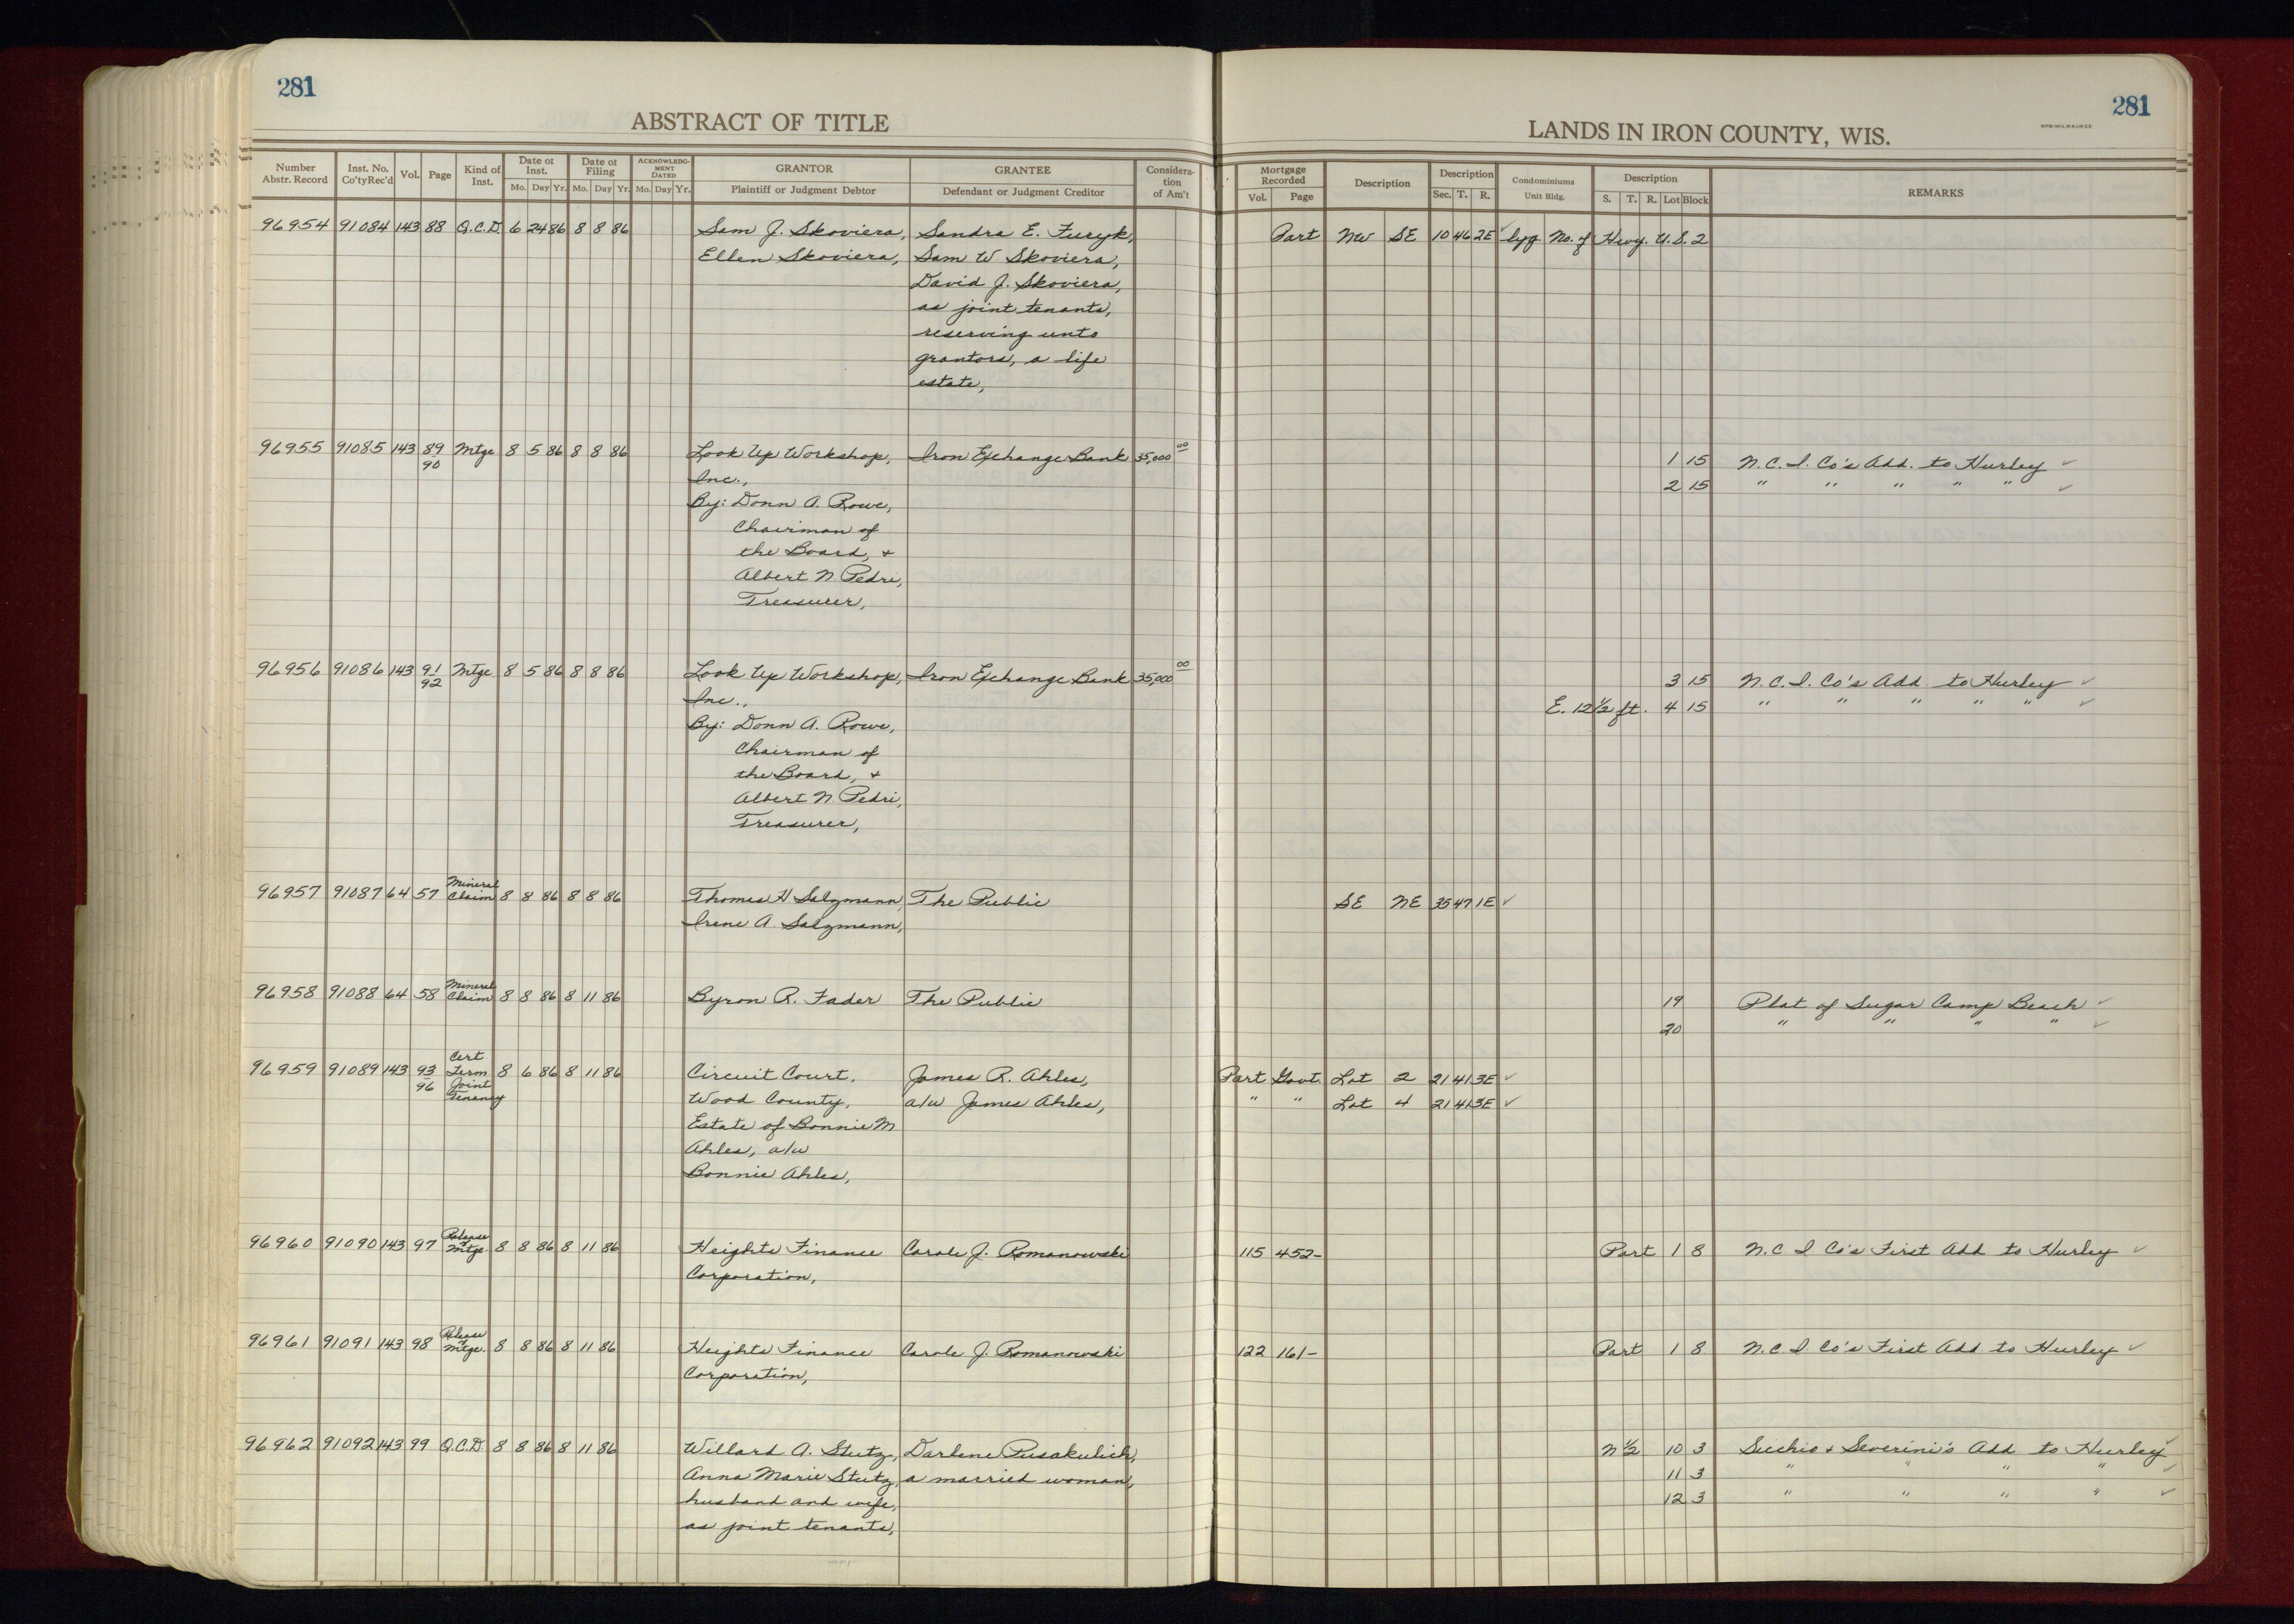 281
281
ABSTRACT OF TITLE
LANDS IN IRON COUNTY, WIS.
Number Abstr. Record Inst. No. Co'ty Rec'd Vol. Page Kind of Inst. Date of Inst. Mo. Day Yr. Date of Filing Mo. Day Yr. ACKNOWLEDGMENT DATED Mo. Day Yr. GRANTOR Plaintiff or Judgment Debtor GRANTEE Defendant or Judgment Creditor Consideration of Am't Mortgage Recorded Vol. Page Description Description Sec. T. R. Condominiums Unit Bldg. Description S. T. R. Lot Block REMARKS
96954 91084 143 88 Q.C.D. 6 24 86 8 8 86 Sam J. Skoviera, Sandra E. Furyk, Part NW SE 10 46 2E ✓ lyg No. of Hwy. U.S. 2
Ellen Skoviera, Sam W. Skoviera,
David J. Skoviera,
as joint tenants,
reserving unto
grantors, a life
estate,
96955 91085 143 89/90 Mtge 8 5 86 8 8 86 Look Up Workshop, Iron Exchange Bank 35,000 00 1 15 N.C.I. Co's Add. to Hurley ✓
Inc., 2 15 " " " " " ✓
By: Donn A. Rowe,
Chairman of
the Board, +
Albert N. Pedri,
Treasurer,
96956 91086 143 91/92 Mtge 8 5 86 8 8 86 Look Up Workshop, Iron Exchange Bank 35,000 00 3 15 N.C.I. Co's Add. to Hurley ✓
Inc., E. 12 1/2 ft. 4 15 " " " " " ✓
By: Donn A. Rowe,
Chairman of
the Board, +
Albert N. Pedri,
Treasurer,
96957 91087 64 57 Mineral Claim 8 8 86 8 8 86 Thomas H Salzmann, The Public SE NE 35 47 1E ✓
Irene A. Salzmann,
96958 91088 64 58 Mineral Claim 8 8 86 8 11 86 Byron R. Fader The Public 19 Plat of Sugar Camp Beach ✓
20 " " " " ✓
96959 91089 143 93/96 Cert Term Joint Tenancy 8 6 86 8 11 86 Circuit Court, James R. Ahles, Part Govt. Lot 2 21 41 3E ✓
Wood County, a/w James Ahles, " " Lot 4 21 41 3E ✓
Estate of Bonnie M
Ahles, a/w
Bonnie Ahles,
96960 91090 143 97 Release of Mtge 8 8 86 8 11 86 Heights Finance Carole J. Romanowski 115 452- Part 1 8 N.C.I Co's First Add to Hurley ✓
Corporation,
96961 91091 143 98 Release of Mtge. 8 8 86 8 11 86 Heights Finance Carole J. Romanowski 122 161- Part 1 8 N.C.I Co's First Add to Hurley ✓
Corporation,
96962 91092 143 99 Q.C.D. 8 8 86 8 11 86 Willard A. Stutz, Darlene Pusakulich, N 1/2 10 3 & Severini's Add to Hurley ✓
Anna Marie Stutz, a married woman, 11 3 " " " " ✓
husband and wife, 12 3 " " " " ✓
as joint tenants,